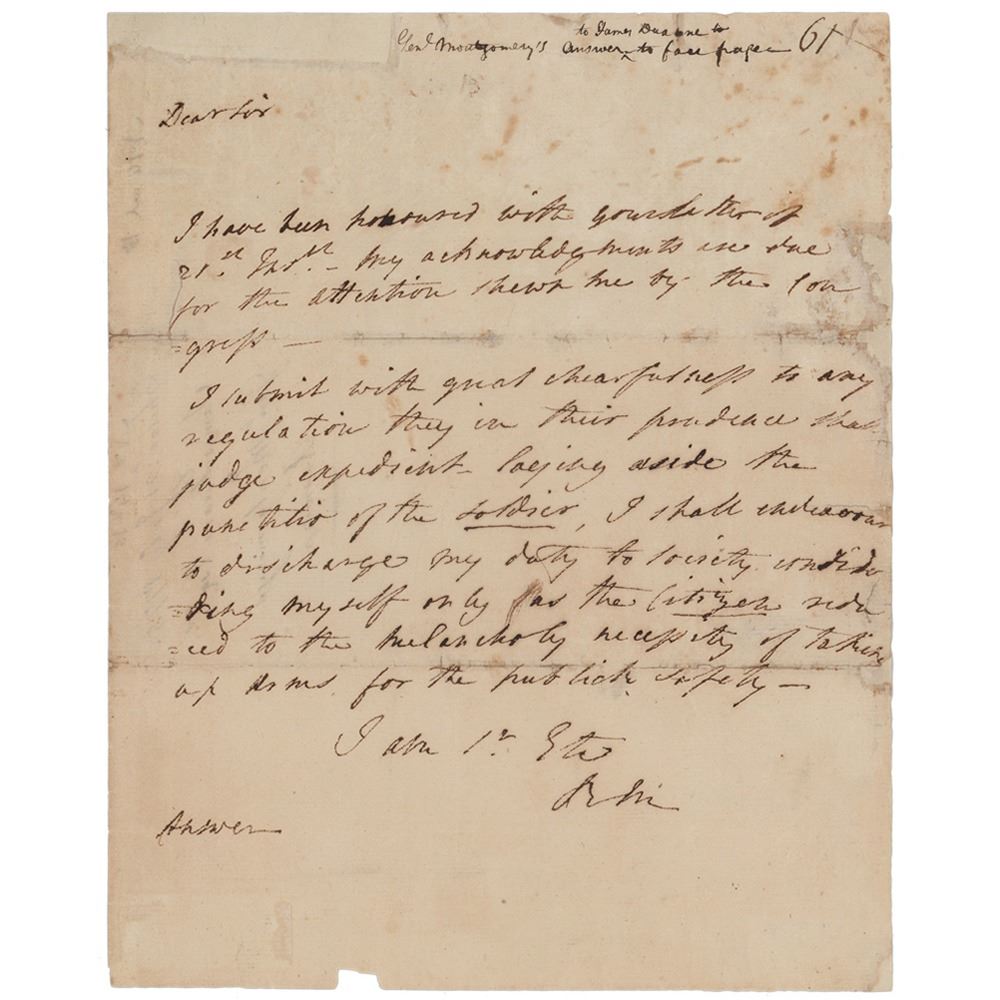 to James Duane to
Genl Montgomery's Answer ^ to face page 61
Dear Sir
I have been honoured with your Letter of
21.st Inst.- My acknowledgments are due
for the attention shewn me by the Con
=gress —
I submit with great chearfulness to any
regulation they in their prudence shall
judge expedient - laying aside the
punctilio of the soldier, I shall endeavour
to discharge my duty to society consid
=ring myself only as the Citizen redu
=ced to the melancholy necessity of taking
up Arms for the publick safety —
I am Sr Etc
RM
Answer